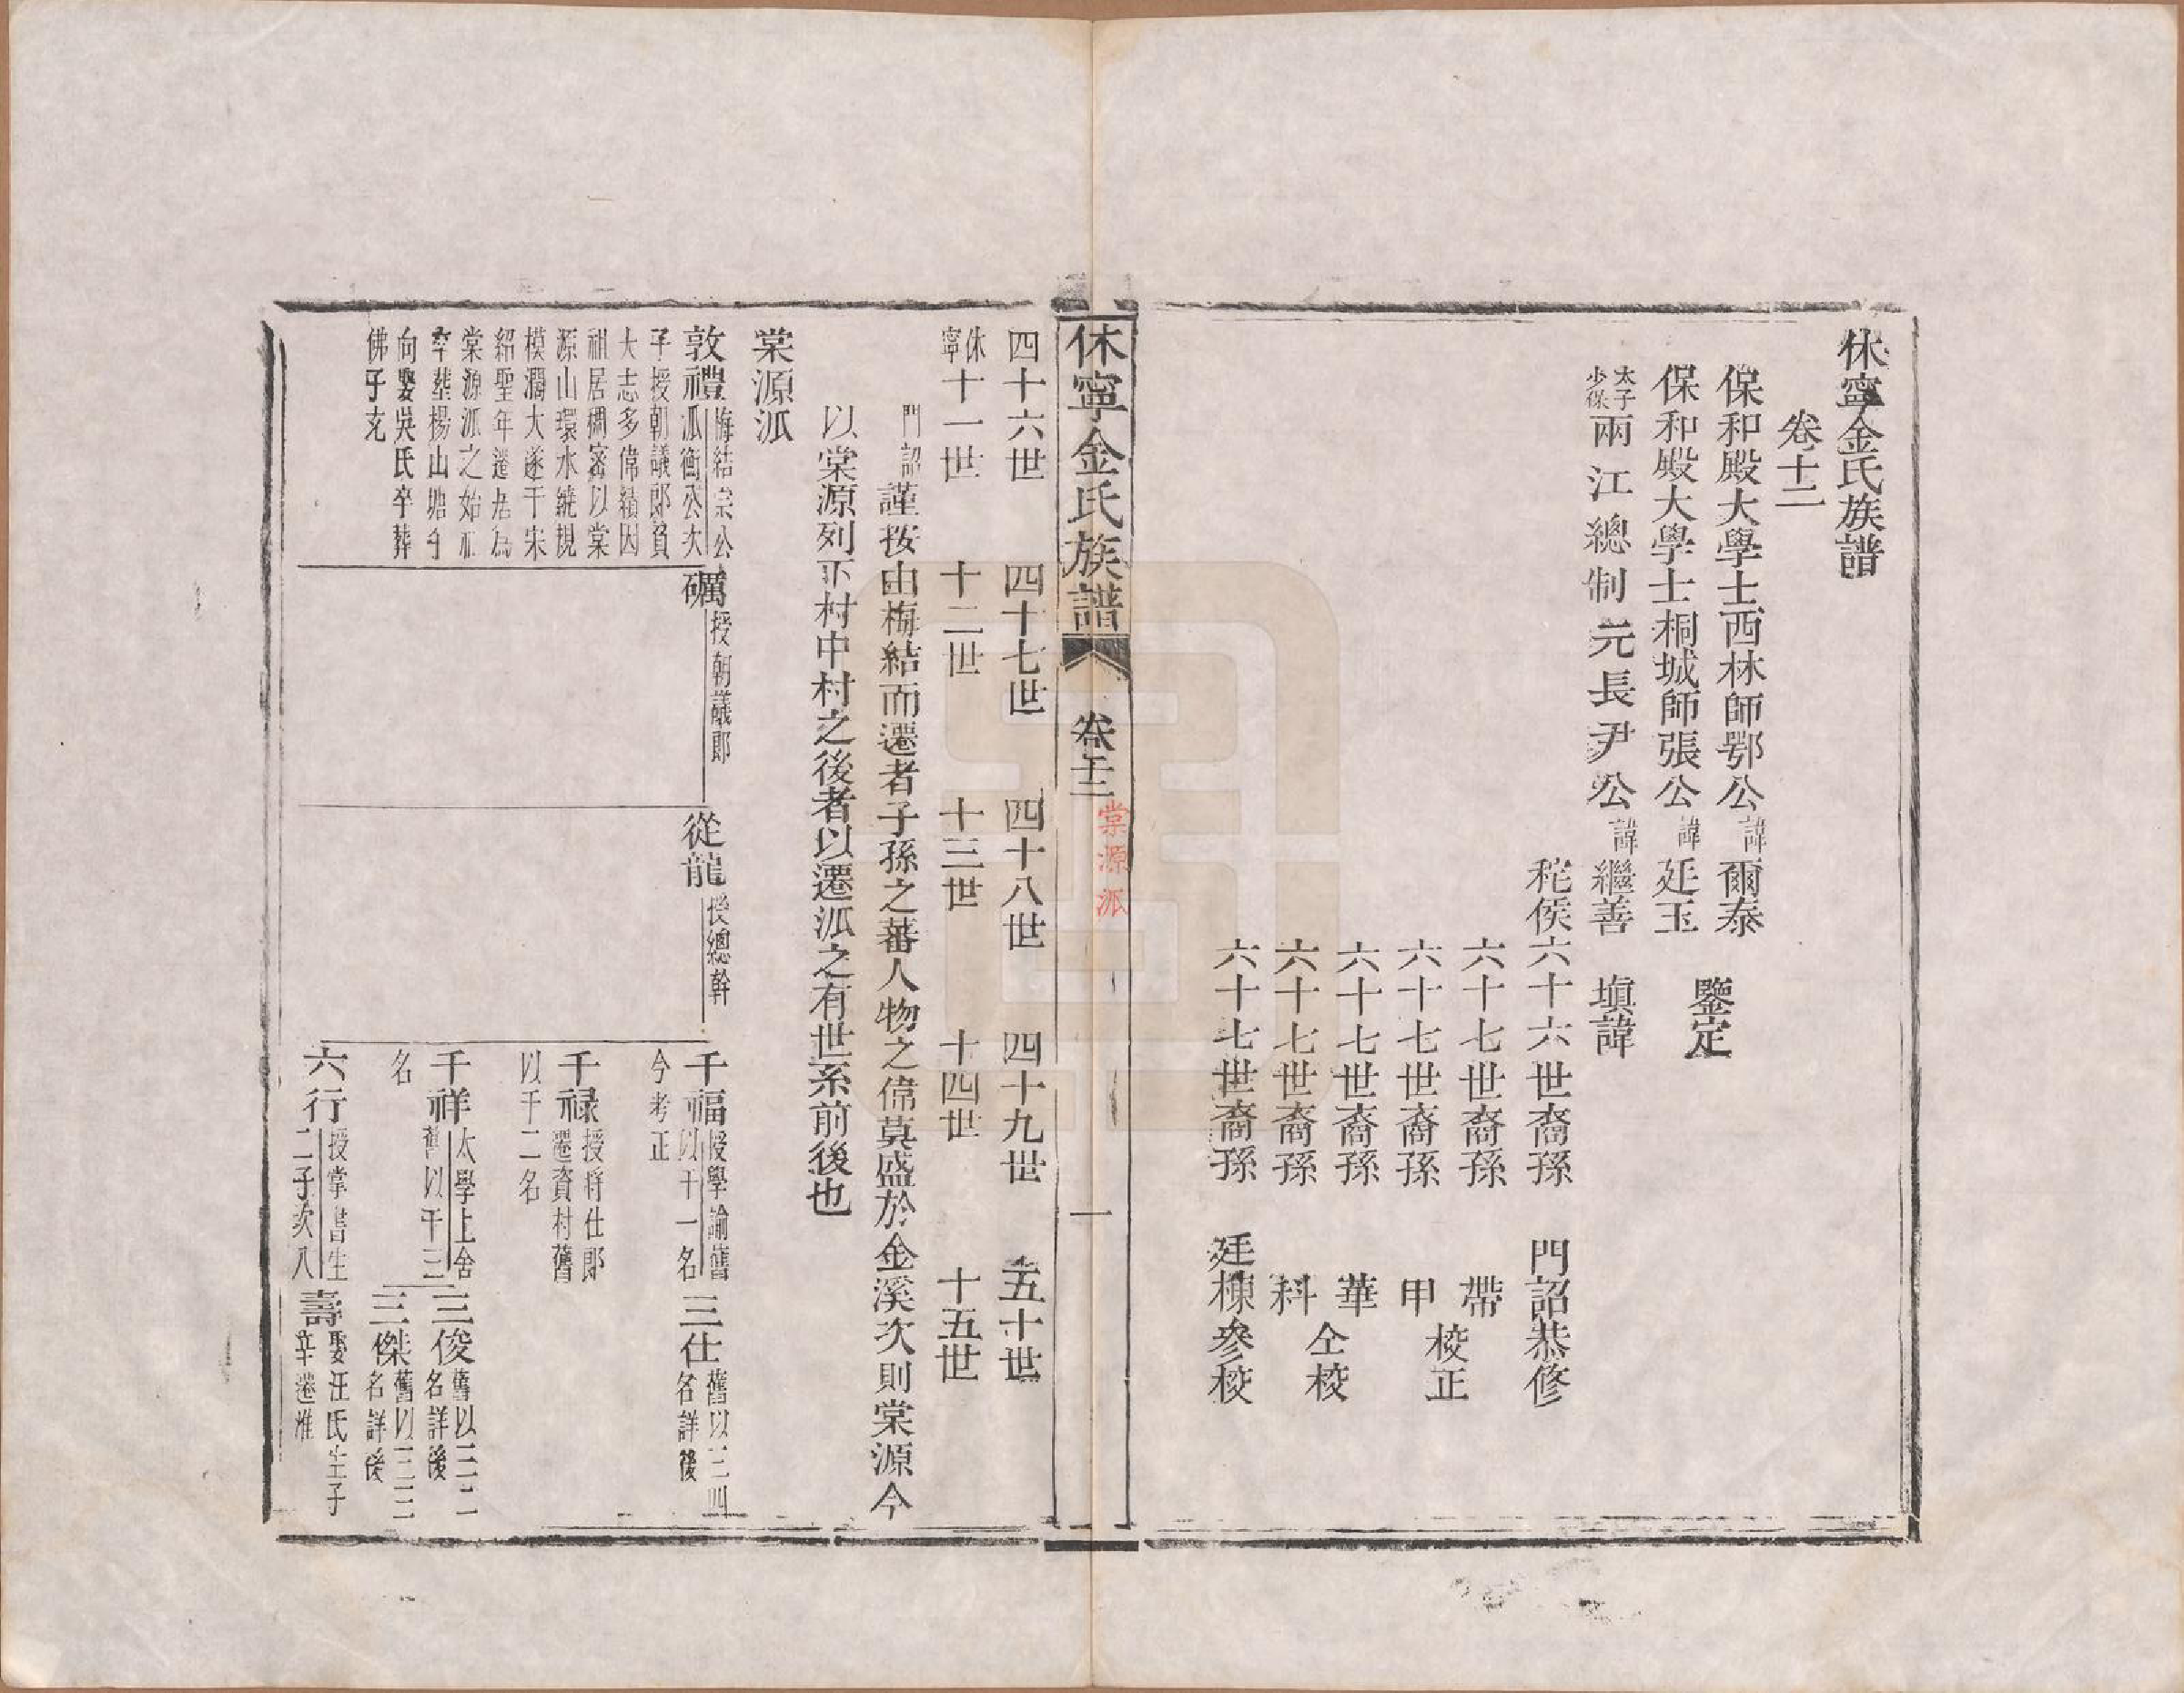 休寧金氏族譜
卷十二
保和殿大學士西林師鄂公諱爾泰
保和殿大學士桐城師張公諱廷玉
鑒定
太子少保兩江總制元長尹公諱繼善 塡諱
秺侯六十六世裔孫 門詔恭修
六十七世裔孫 帶
六十七世裔孫 甲
校正
六十七世裔孫 華
六十七世裔孫 科
仝校
六十七世裔孫 廷棟參校
休寧金氏族譜 卷十二 棠源派 一
四十六世 四十七世 四十八世 四十九世 五十世
休寧十一世 十二世 十三世 十四世 十五世
門詔謹按由梅結而遷者子孫之蕃人物之偉莫盛於金溪次則棠源今
以棠源列下村中村之後者以遷派之有世系前後也
棠源派
敦禮
梅結宗公
派衝公次
子授朝議郎負
大志多偉績因
祖居稠密以棠
源山環水繞規
模濶大遂于宋
紹聖年遷居爲
棠源派之始祖
卒葬楊山塘午
向娶吳氏卒葬
佛子充
礪
授朝議郎
從龍
授總幹
千福
授學諭舊
以千一名
今考正
千禄
授將仕郎
遷資村舊
以千二名
千祥
太學上舍
舊以千三
名
六行
授掌書生
二子次八
三仕
舊以三四
名詳後
三俊
舊以三二
名詳後
三傑
舊以三三
名詳後
壽
娶汪氏生子
辛遷淮